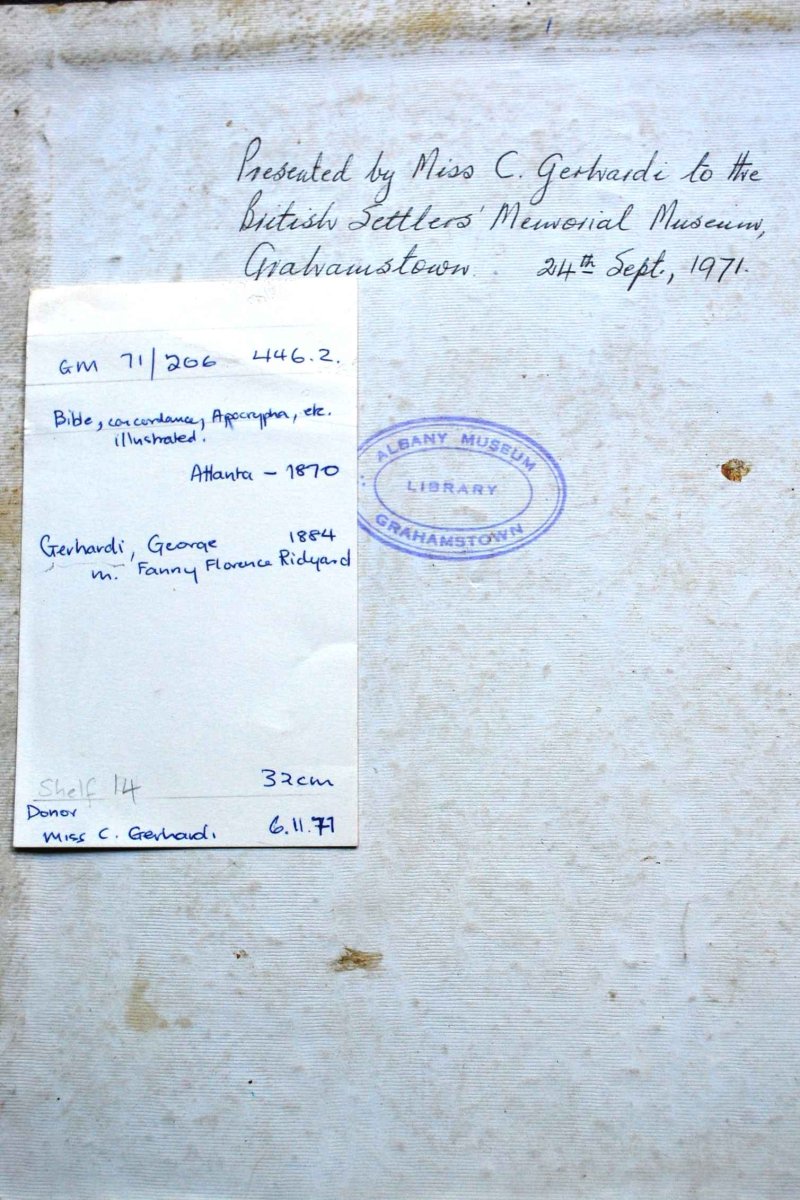 Presented by Miss C. Gerhardi to the
British Settlers' Memorial Museum,
Grahamstown. 24th Sept., 1971.
GM 71/206 446.2.
Bible, concordance, Apocrypha, etc.
illustrated.
Atlanta - 1870
Gerhardi, George 1884
m. Fanny Florence Ridyard
Shelf 14
32cm
Donor
Miss C. Gerhardi. 6.11.71
ALBANY MUSEUM
LIBRARY
GRAHAMSTOWN